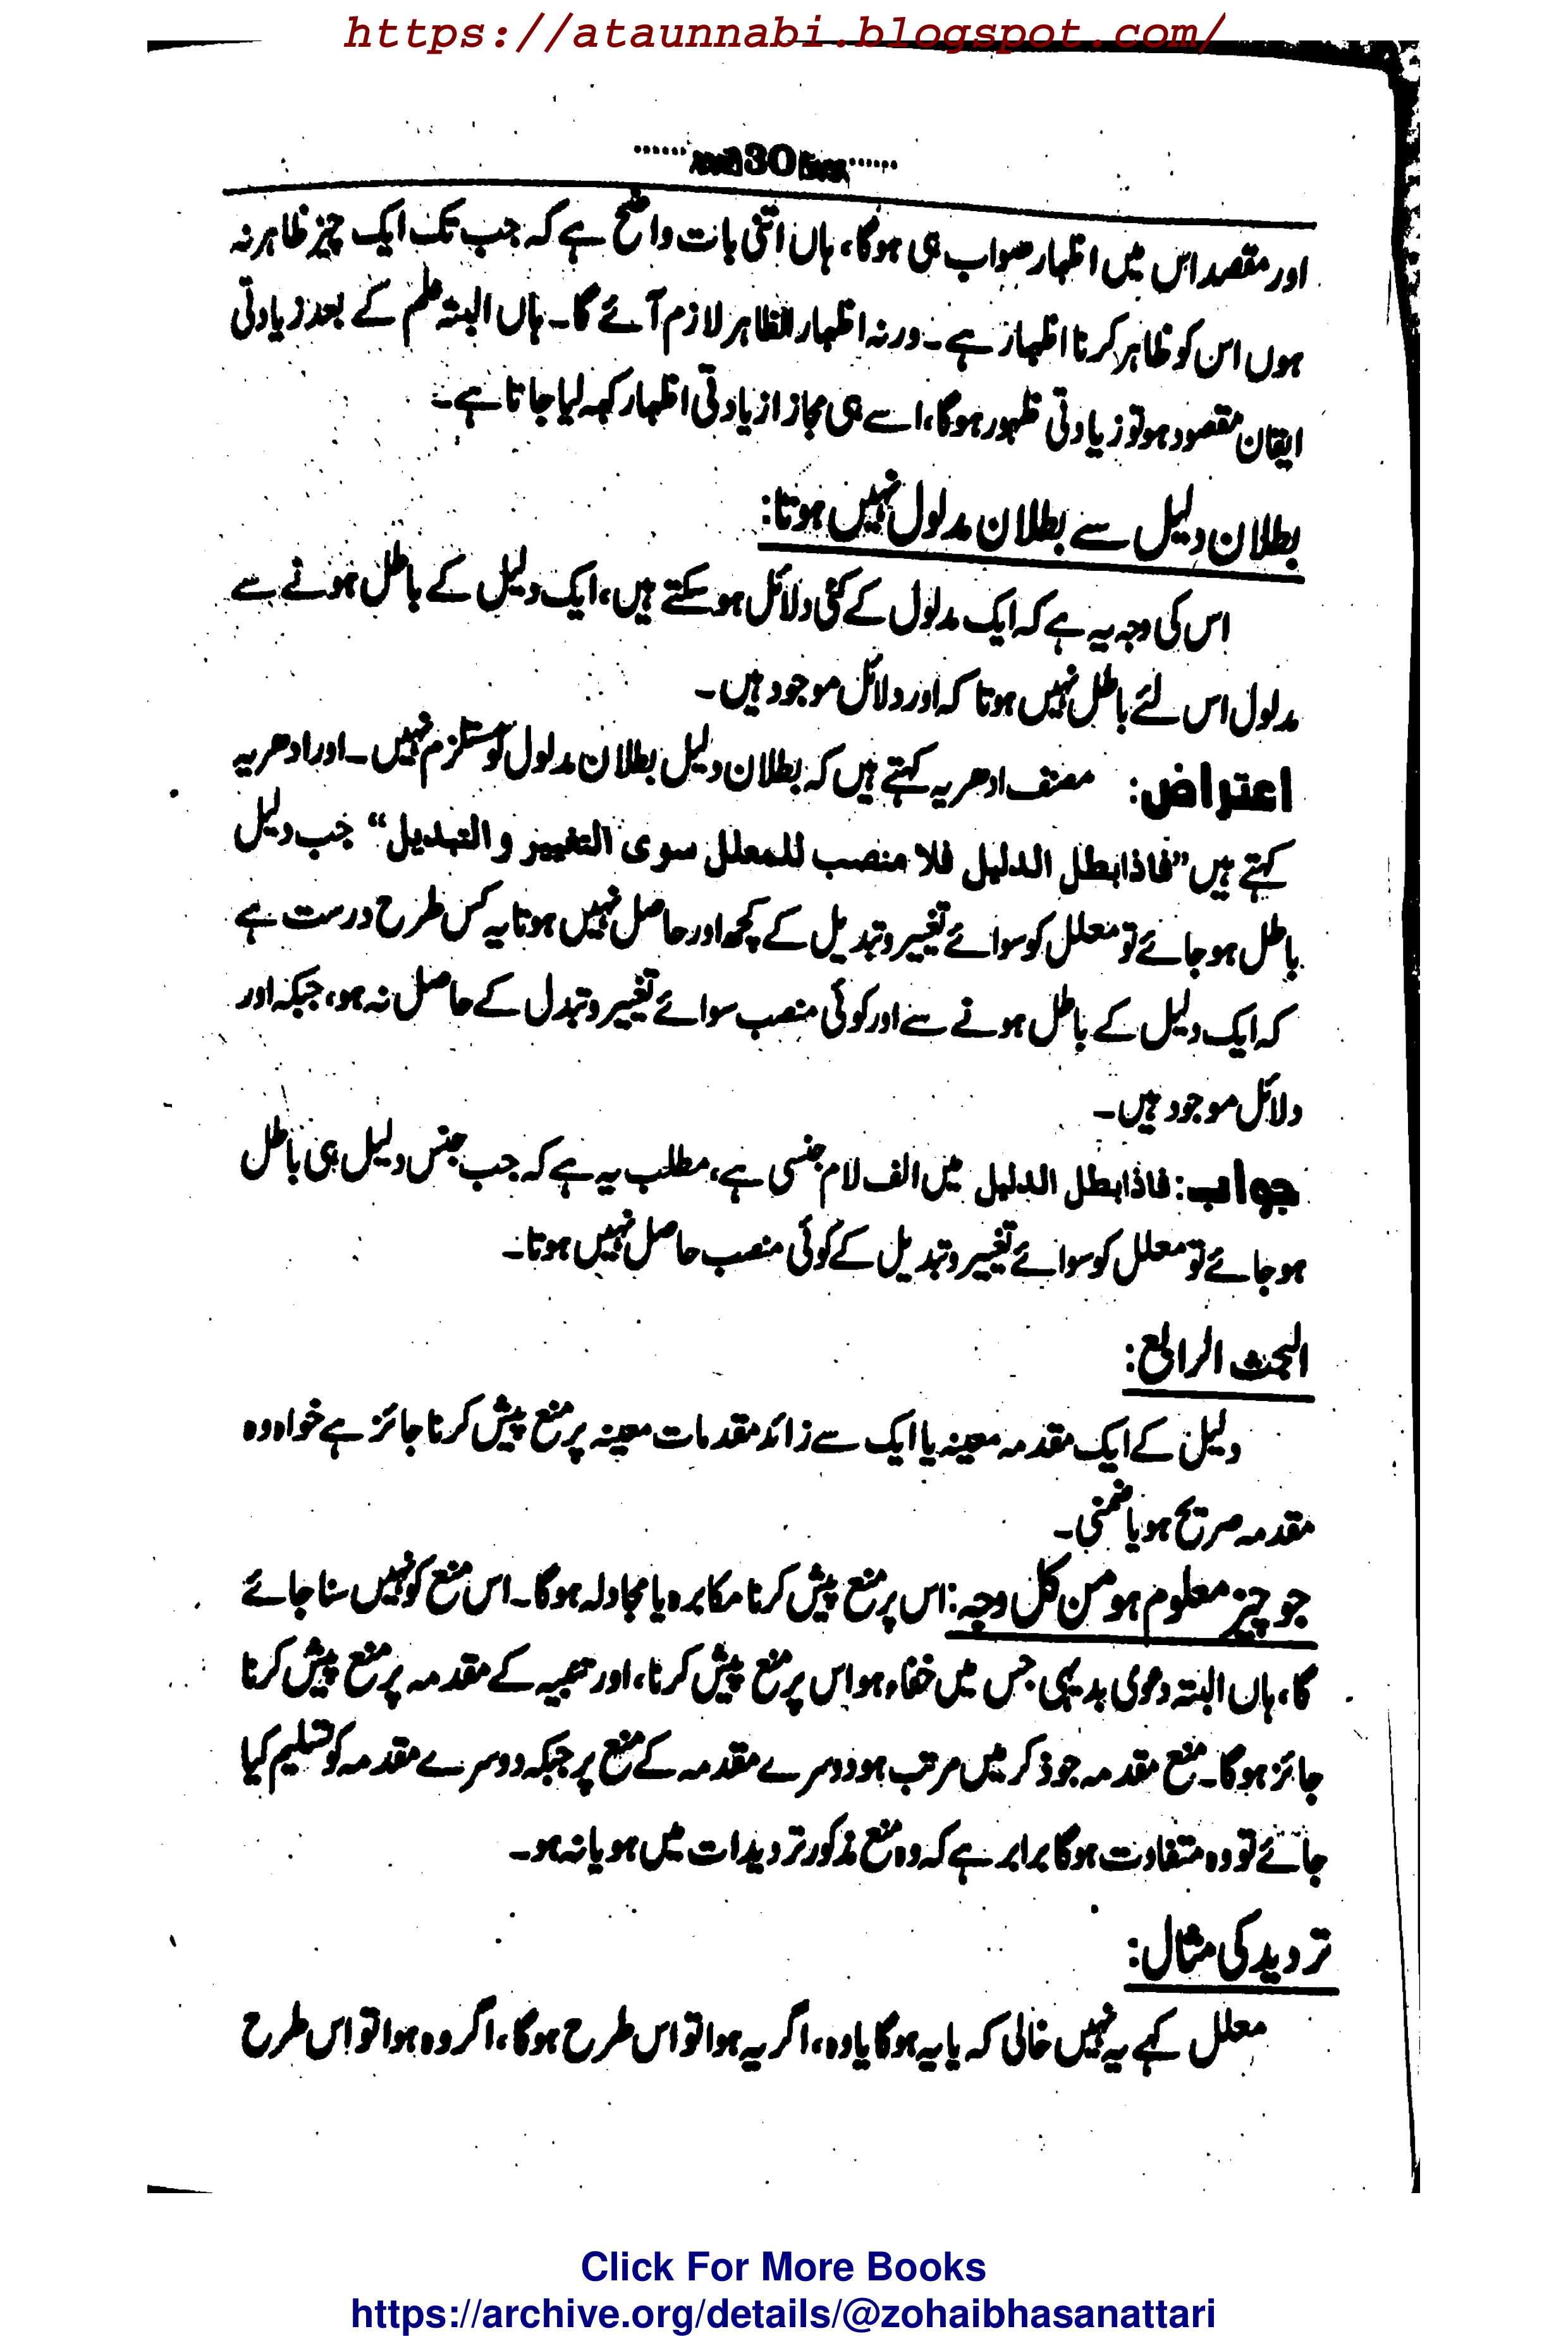 https://ataunnabi.blogspot.com/
30
اور مقصد اس میں اظہار صواب ہی ہوگا، ہاں اتنی بات واضح ہے کہ جب تک ایک چیز ظاہر نہ
ہوں اس کو ظاہر کرنا اظہار ہے۔ ورنہ اظہار الظاہر لازم آئے گا۔ ہاں البتہ علم کے بعد زیادتی
ایقان مقصود ہو تو زیادتی ظہور ہوگا، اسے ہی مجازاً زیادتی اظہار کہہ لیا جاتا ہے۔
بطلان دلیل سے بطلان مدلول نہیں ہوتا:
اس کی وجہ یہ ہے کہ ایک مدلول کے کئی دلائل ہو سکتے ہیں، ایک دلیل کے باطل ہونے سے
مدلول اس لئے باطل نہیں ہوتا کہ اور دلائل موجود ہیں۔
اعتراض: مصنف ادھر یہ کہتے ہیں کہ بطلان دلیل بطلان مدلول کو مستلزم نہیں۔ اور ادھر یہ
کہتے ہیں ”فاذا بطل الدلیل فلا منصب للمعلل سوی التغییر و التبدیل“ جب دلیل
باطل ہو جائے تو معلل کو سوائے تغییر و تبدیل کے کچھ اور حاصل نہیں ہوتا یہ کس طرح درست ہے
کہ ایک دلیل کے باطل ہونے سے اور کوئی منصب سوائے تغییر و تبدل کے حاصل نہ ہو، جبکہ اور
دلائل موجود ہیں۔
جواب: فاذا بطل الدلیل میں الف لام جنسی ہے، مطلب یہ ہے کہ جب جنس دلیل ہی باطل
ہو جائے تو معلل کو سوائے تغییر و تبدیل کے کوئی منصب حاصل نہیں ہوتا۔
البحث الرابع:
دلیل کے ایک مقدمہ معینہ یا ایک سے زائد مقدمات معینہ پر منع پیش کرنا جائز ہے خواہ وہ
مقدمہ صریح ہو یا ضمنی۔
جو چیز معلوم ہو من کل وجہ: اس پر منع پیش کرنا مکابرہ یا مجادلہ ہوگا۔ اس منع کو نہیں سنا جائے
گا، ہاں البتہ دعویٰ بدیہی جس میں خفاء ہو اس پر منع پیش کرنا، اور تنبیہ کے مقدمہ پر منع پیش کرنا
جائز ہوگا۔ منع مقدمہ جو ذکر میں مرتب ہو دوسرے مقدمہ کے منع پر جبکہ دوسرے مقدمہ کو تسلیم کیا
جائے تو وہ متفاوت ہوگا برابر ہے کہ وہ منع مذکور تردیدات میں ہو یا نہ ہو۔
تردید کی مثال:
معلل کہے یہ نہیں خالی کہ یا یہ ہوگا یا وہ، اگر یہ ہوا تو اس طرح ہوگا، اگر وہ ہوا تو اس طرح
Click For More Books
https://archive.org/details/@zohaibhasanattari